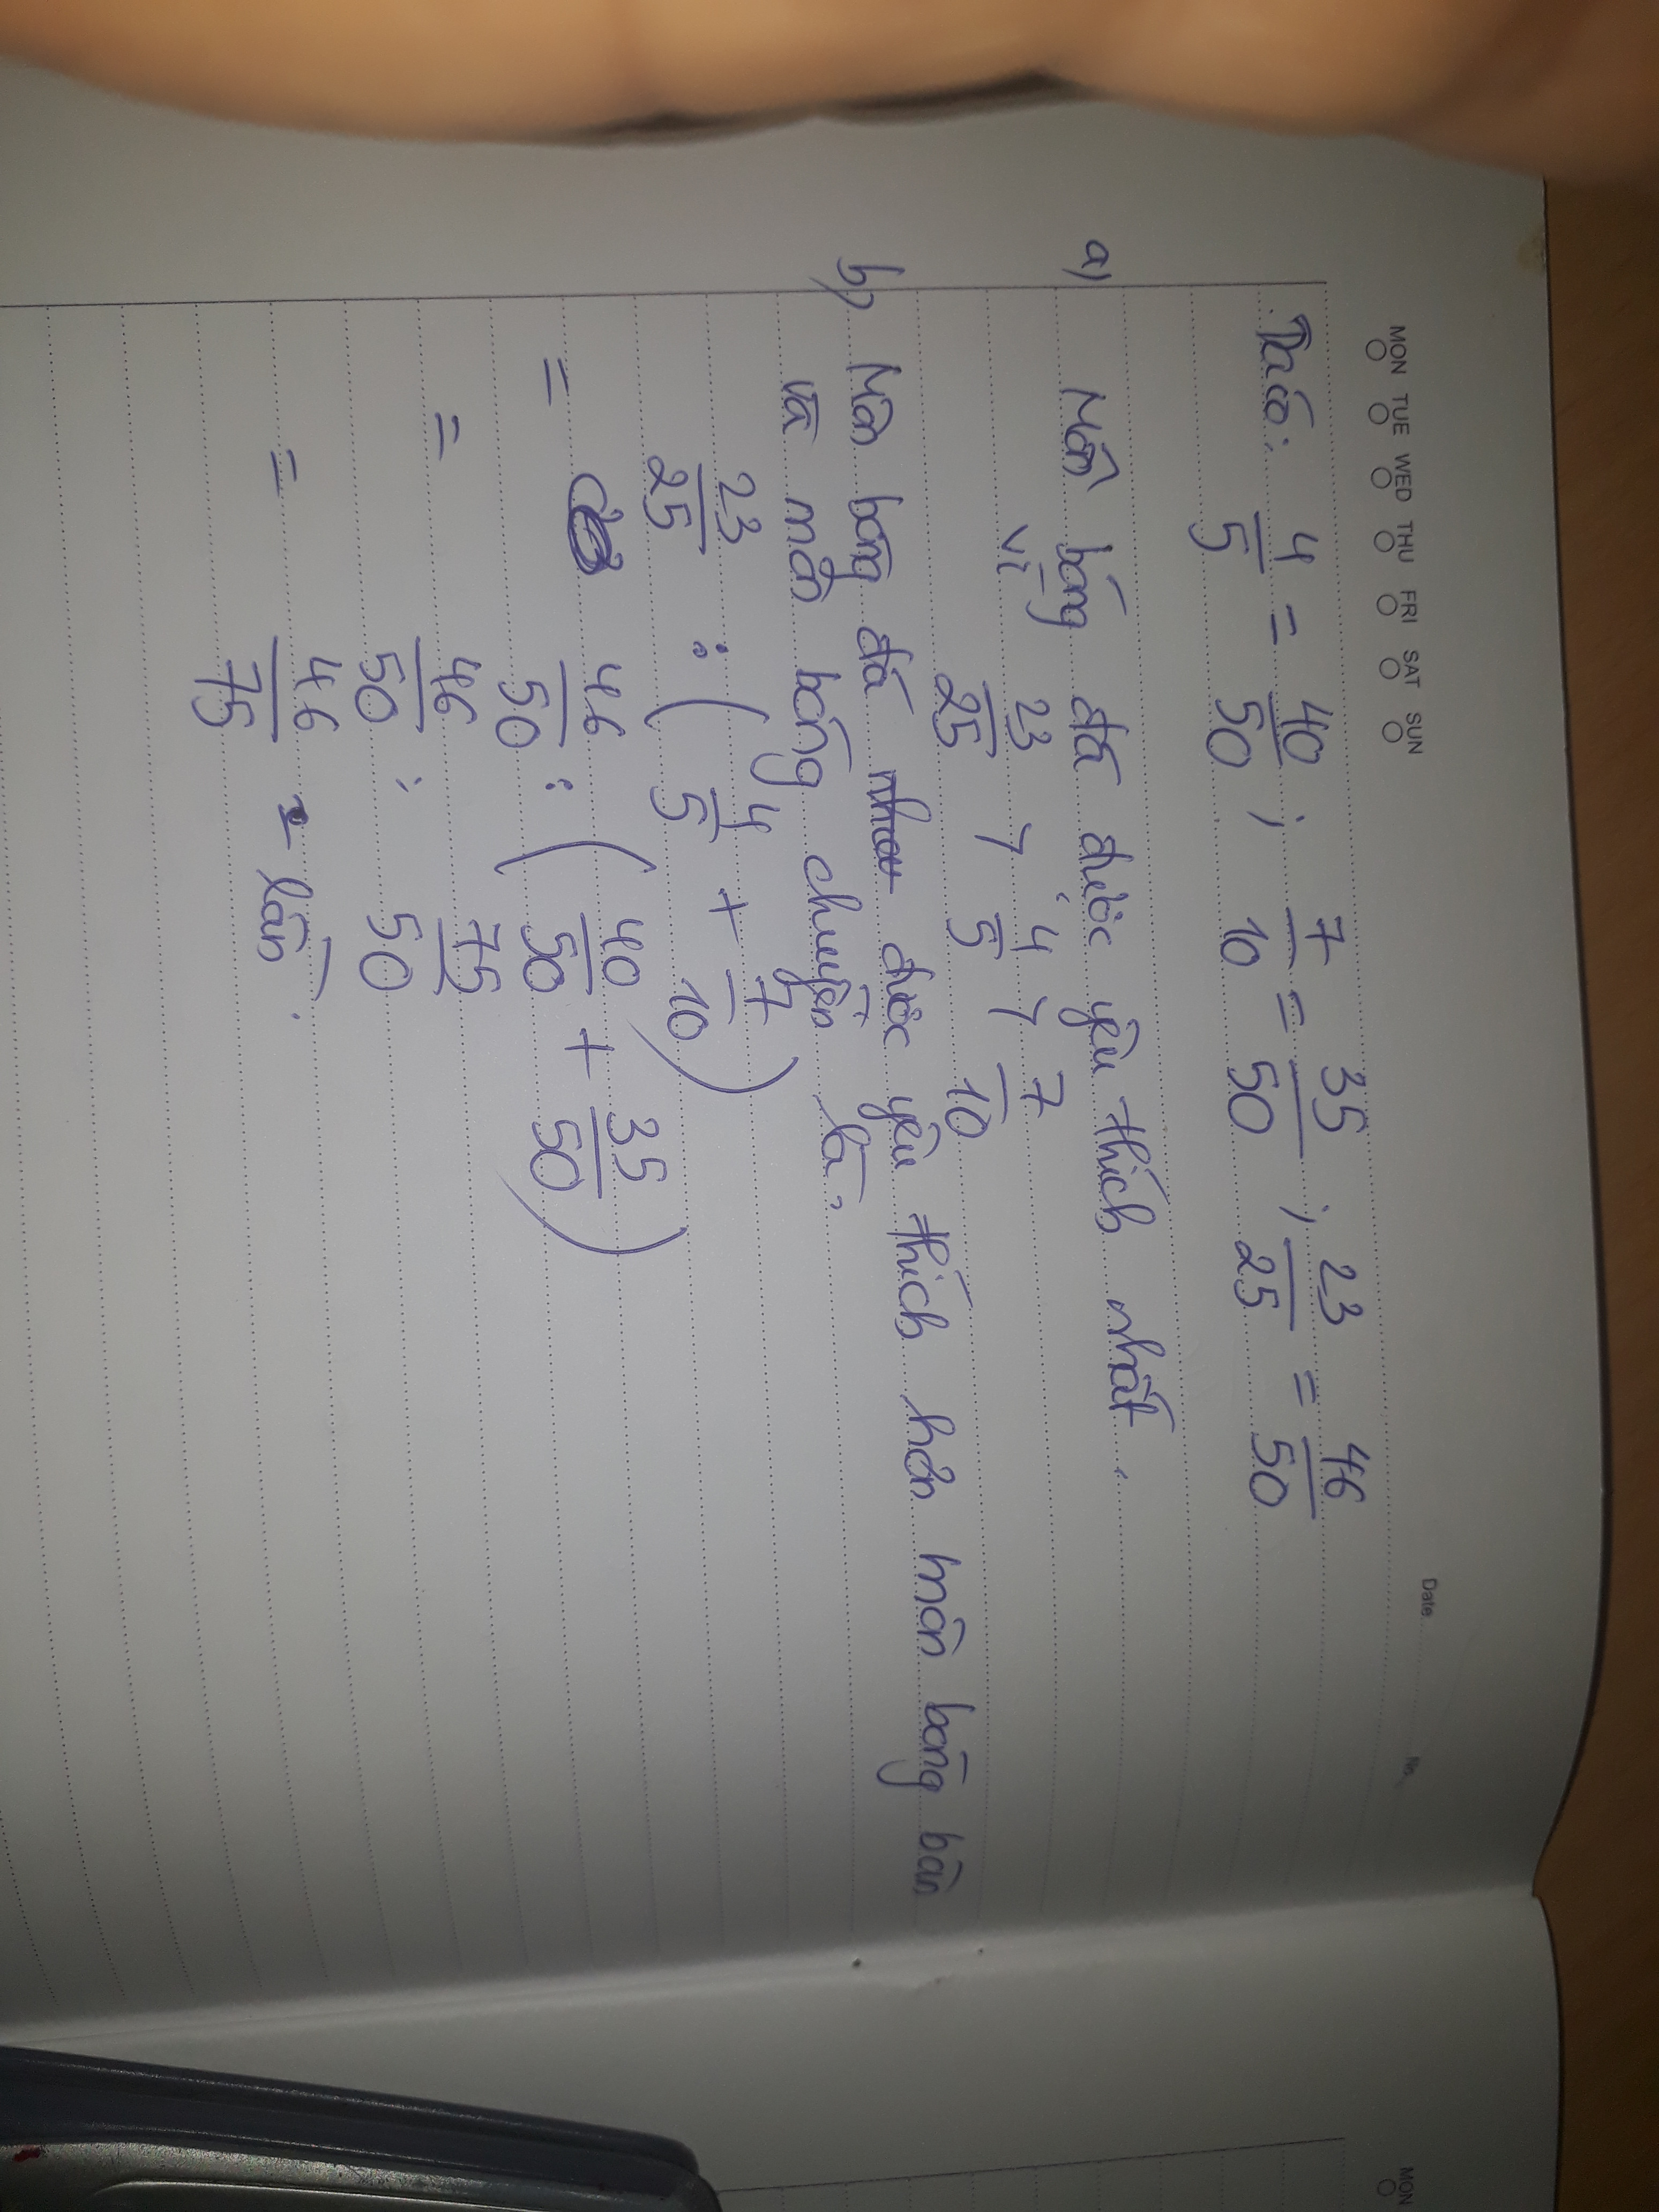 MON TUE WED THU FRI SAT SUN
Date No.
Ta có: 4/5 = 40/50 ; 7/10 = 35/50 ; 23/25 = 46/50
a) Môn bóng đá được yêu thích nhất.
Vì 23/25 > 4/5 > 7/10
b) Môn bóng đá được yêu thích hơn môn bóng bàn
và môn bóng chuyền là:
23/25 : ( 4/5 + 7/10 )
= 46/50 : ( 40/50 + 35/50 )
= 46/50 : 75/50
= 46/75 lần.
MON